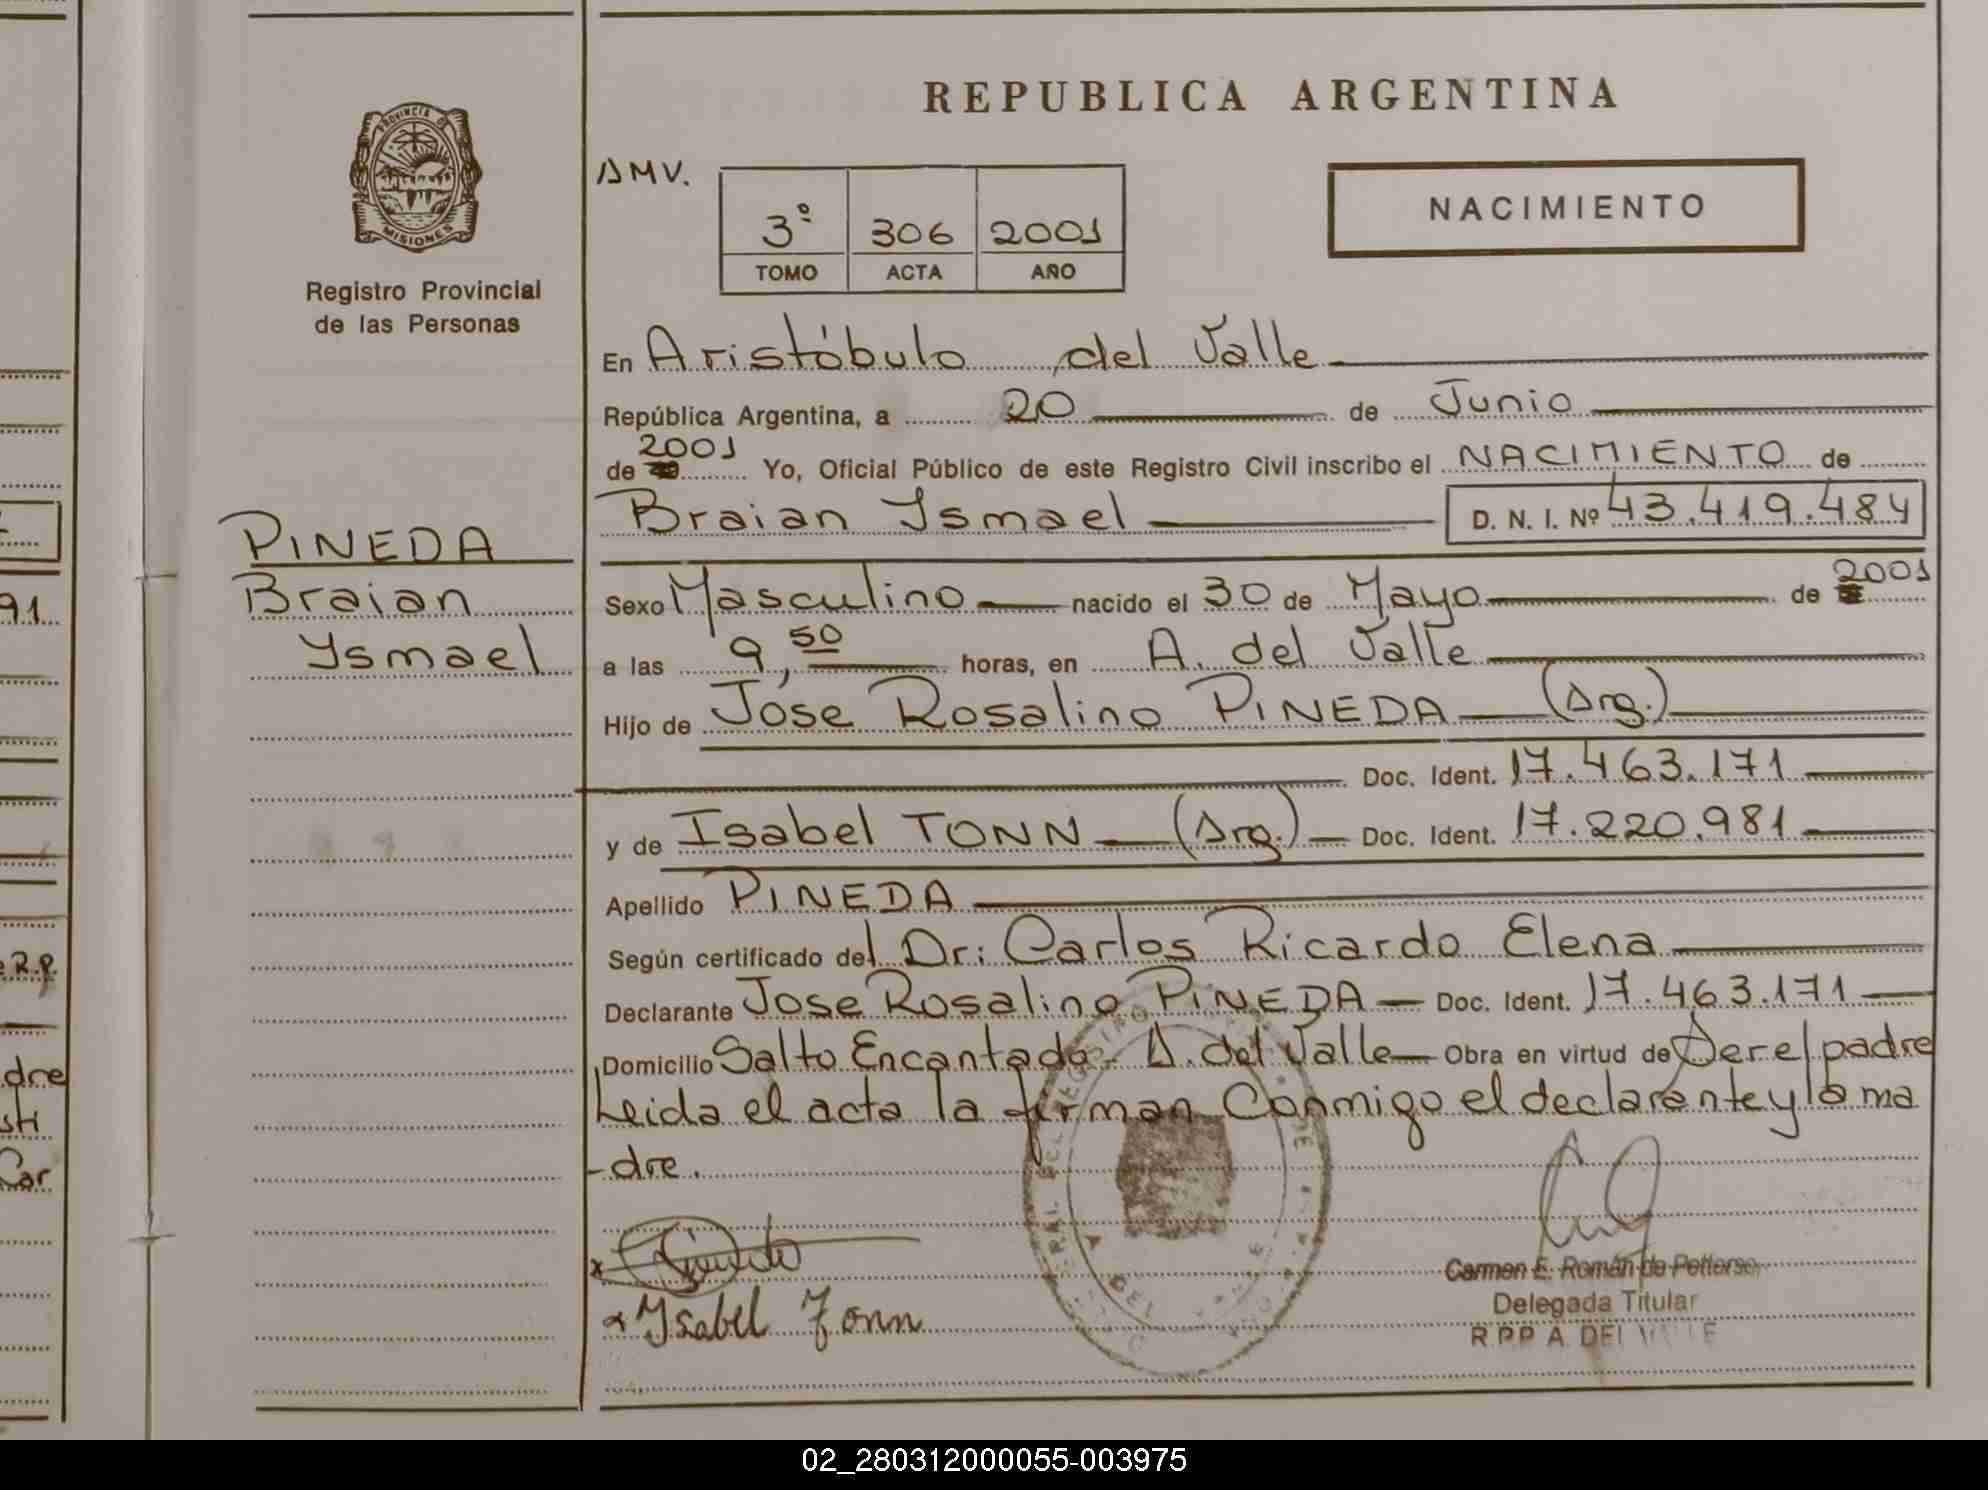 REPUBLICA ARGENTINA
PROVINCIA DE
MISIONES
Registro Provincial
de las Personas
AMV.
3º 306 2001
TOMO ACTA AÑO
NACIMIENTO
En Aristóbulo del Valle
República Argentina, a 20 de Junio
de 2001 Yo, Oficial Público de este Registro Civil inscribo el NACIMIENTO de
Braian Ysmael D. N. I. Nº 43.419.484
PINEDA
Braian
Ysmael
Sexo Masculino nacido el 30 de Mayo de 2001
a las 9,50 horas, en A. del Valle
Hijo de Jose Rosalino PINEDA (Arg.)
Doc. Ident. 17.463.171
y de Isabel TONN (Arg.) Doc. Ident. 17.220.981
Apellido PINEDA
Según certificado del Dr: Carlos Ricardo Elena
Declarante Jose Rosalino PINEDA Doc. Ident. 17.463.171
Domicilio Salto Encantado - A. del Valle Obra en virtud de Ser el padre
Leida el acta la firman Conmigo el declarante y la ma
-dre.
x
x Ysabel Tonn
Carmen E. Román de Petterson
Delegada Titular
R.P.P A. DEL VALLE
91
dre
Car
02_280312000055-003975